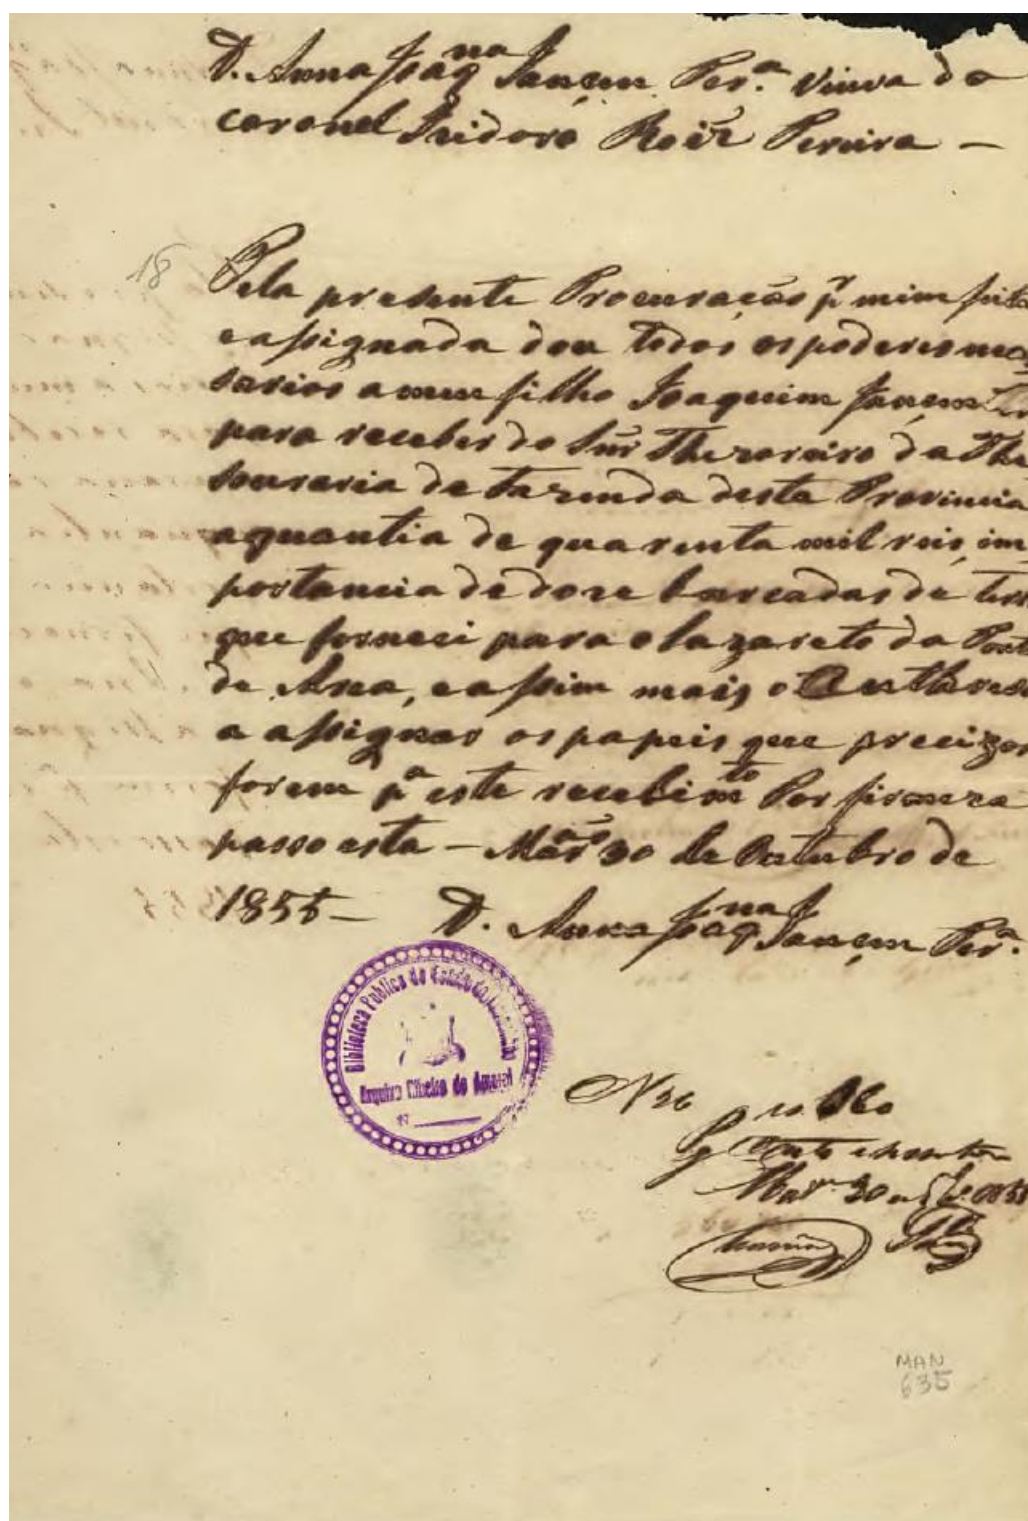 D. Anna Joaq.na Jansem Per.a Viuva do
coronel Izidoro Roiz Pereira —
18
Pela presente Procuração p.r mim feita
e assignada dou todos os poderes neces
sarios a meu filho Joaquim Jansem
para receber do Snr Thezoreiro da The
souraria de Fazenda desta Provincia
a quantia de quarenta mil reis, im
portancia de doze barcadas de terra
que forneci para o lazareto da Ponta
de Area, e assim mais o Authoreso
a assignar os papeis que precizos
forem p.a este recebim.to Por firmeza
passo esta — Mar.ão 30 de Outubro de
1855 — D. Anna Joaq.na Jansem Per.a
Biblioteca Publica do Estado do Maranhão
Arquivo Ribeiro do Amaral
19
N 26
Mar.m 30
MAN
635